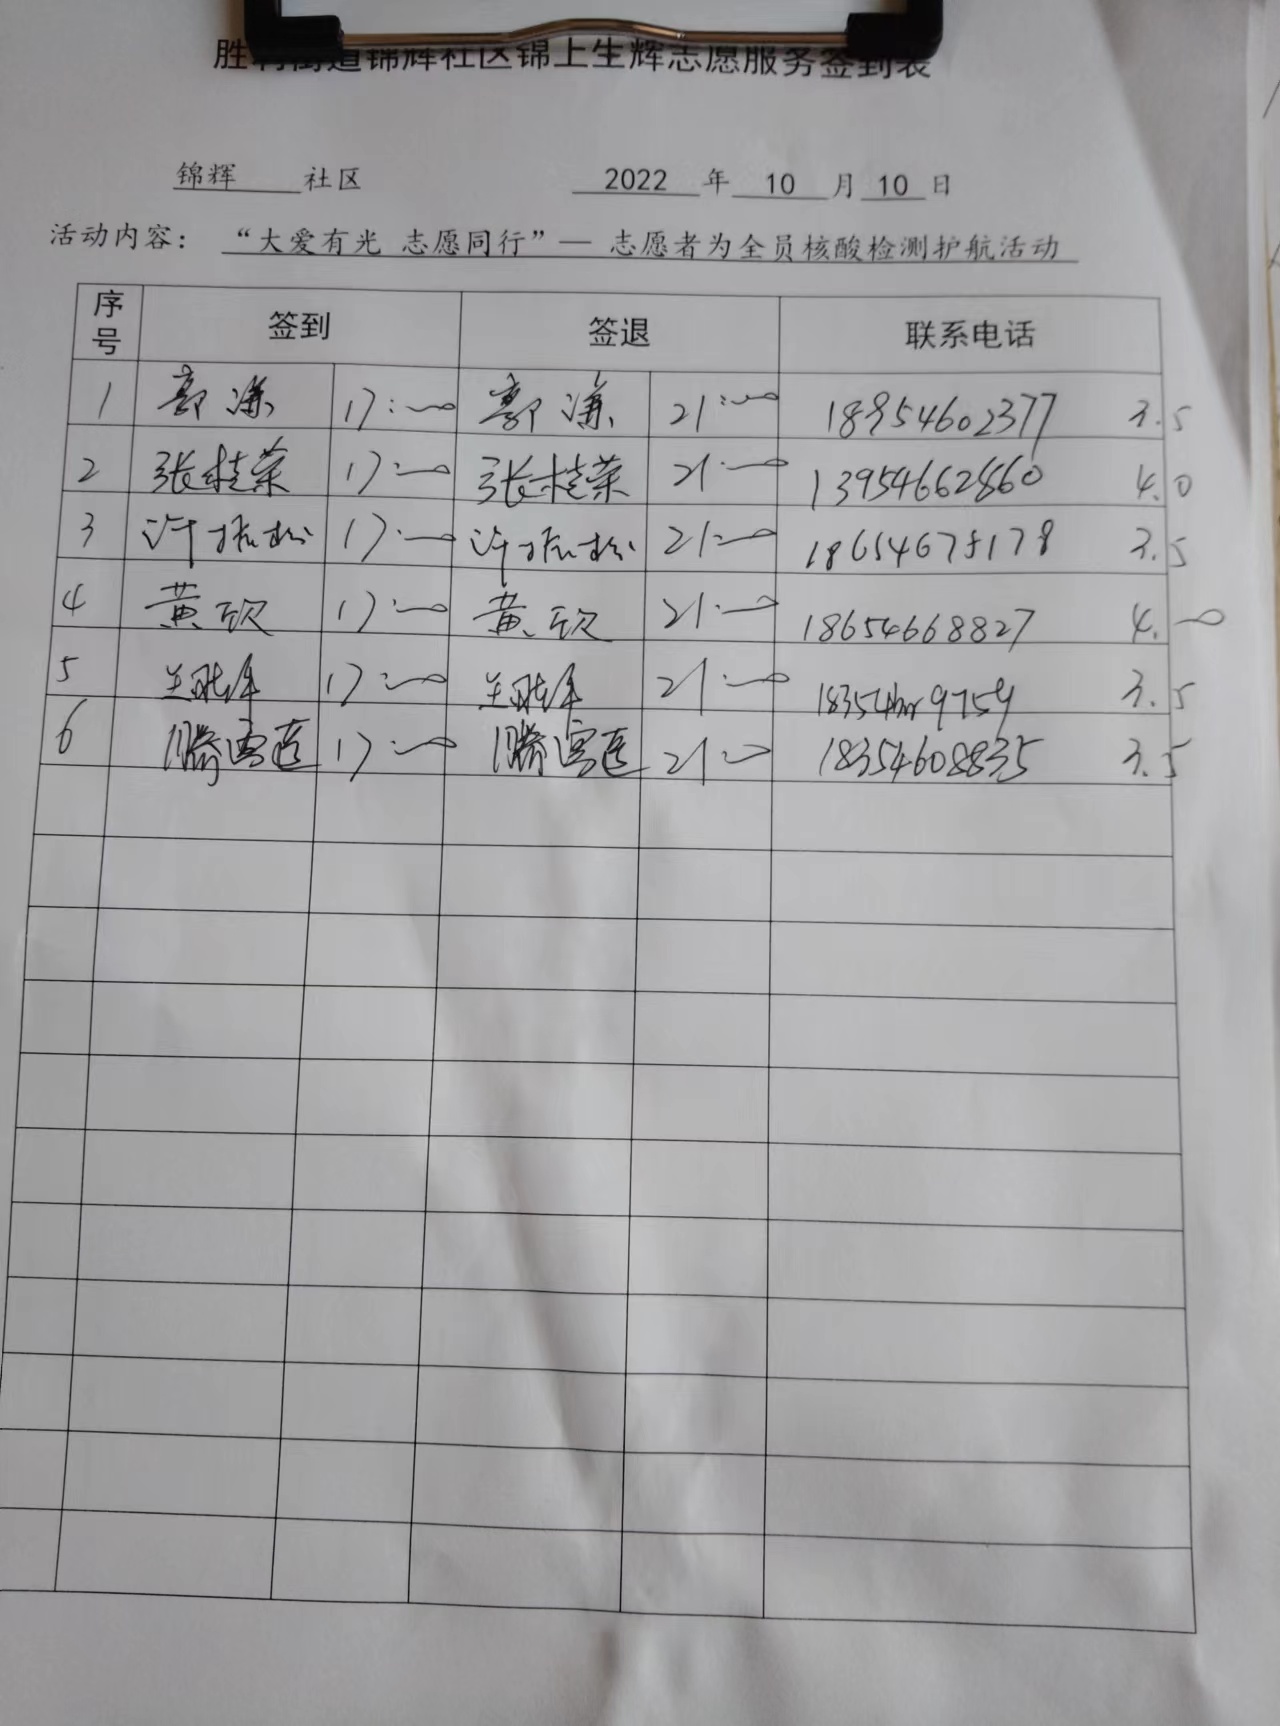 胜利街道锦辉社区锦上生辉志愿服务签到表
锦辉 社区 2022 年 10 月 10 日
活动内容： “大爱有光 志愿同行”— 志愿者为全员核酸检测护航活动
序号 签到 签退 联系电话
1 17:00 21:00 18954602377 3.5
2 张桂荣 17:00 张桂荣 21:00 13954662860 4.0
3 许振松 17:00 许振松 21:00 18654675178 3.5
4 黄欣 17:00 黄欣 21:00 18654668827 4.00
5 17:00 21:00 3.5
6 17:00 21:00 18354608835 3.5